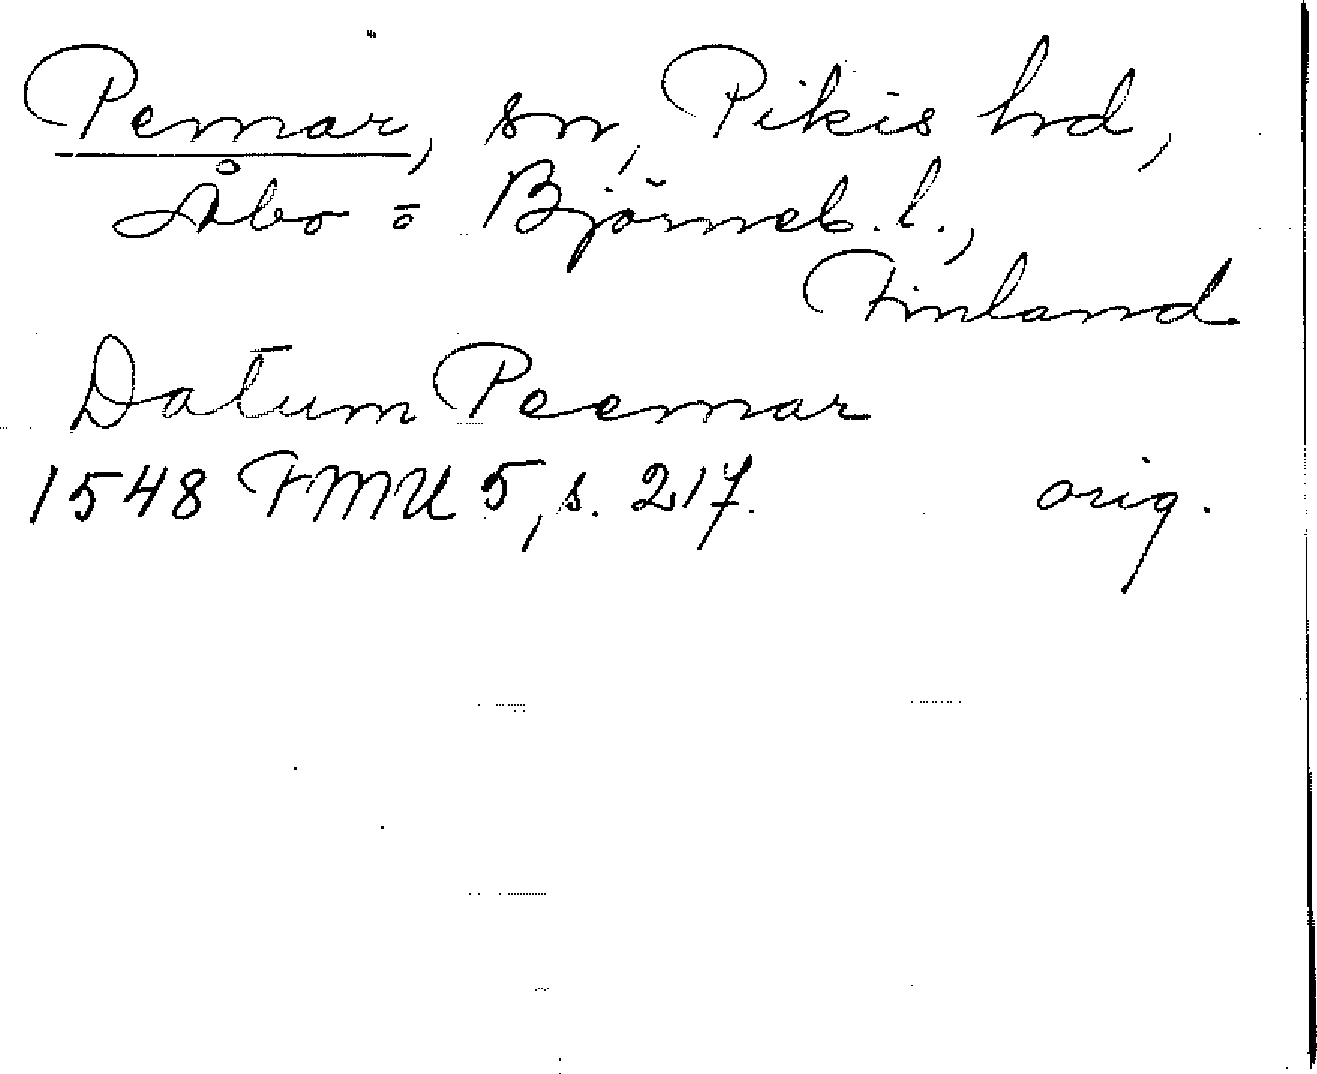 Pemar, sn, Pikis hd,
Åbo o Björneb. l.,
Finland
Datum Peemar
1548 FMU 5, s. 217. orig.